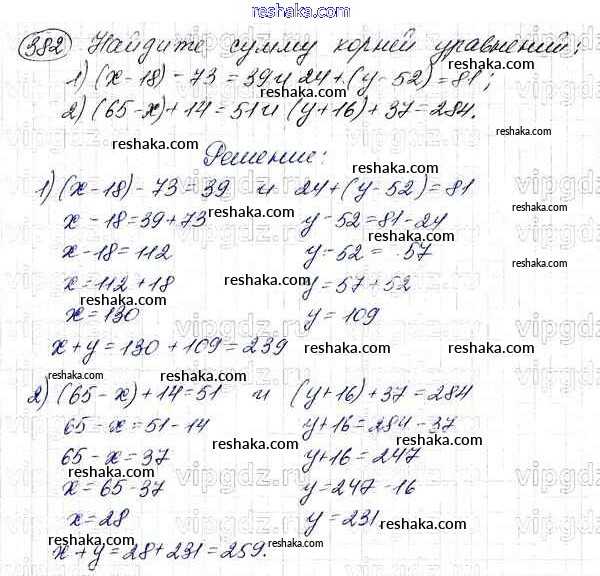 reshaka.com
382 Найдите сумму корней уравнений:
1) (x-18) - 73 = 39 и 24 + (y - 52) = 81;
2) (65 - x) + 14 = 51 и (y + 16) + 37 = 284.
Решение:
1) (x - 18) - 73 = 39 и 24 + (y - 52) = 81
x - 18 = 39 + 73 y - 52 = 81 - 24
x - 18 = 112 y - 52 = 57
x = 112 + 18 y = 57 + 52
x = 130 y = 109
x + y = 130 + 109 = 239
2) (65 - x) + 14 = 51 и (y + 16) + 37 = 284
65 - x = 51 - 14 y + 16 = 284 - 37
65 - x = 37 y + 16 = 247
x = 65 - 37 y = 247 - 16
x = 28 y = 231
x + y = 28 + 231 = 259.